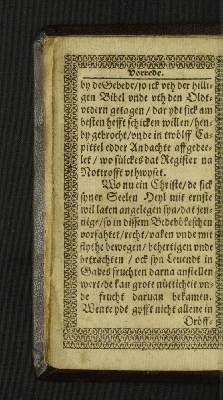 Vorrede.
by de Gebede / so ick vth der hilli-
gen Bibel vnde vth den Olt-
vedern getagen / dar ydt sick am
besten hefft schicken willen / hen-
by gebrocht / vnde in twölff Ca-
pittel edder Andachte affgedee-
let / wo sülckes dat Register na
Nottrofft vthwyset.
Wo nu ein Christe / de sick
syner Seelen Heyl mit ernste
wil laten angelegen syn / dat jen-
nige / so in dissem Bedebökeschen
vorfahtet / recht / vaken vnde mit
flythe bewegen / behertigen vnde
betrachten / ock syn Leuendt in
Gades fruchten darna anstellen
wert / de kan grote nütticheit vn-
de frucht daruan bekamen.
Wente ydt gyfft nicht allene in
Dröff-